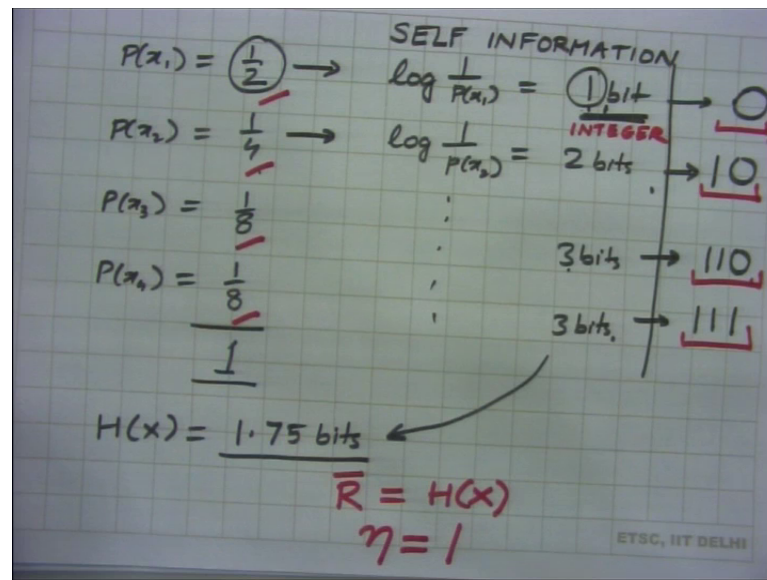 SELF INFORMATION
P(x₁) = 1/2 → log 1/P(x₁) = 1 bit → 0
INTEGER
P(x₂) = 1/4 → log 1/P(x₂) = 2 bits → 10
P(x₃) = 1/8 3 bits → 110
P(x₄) = 1/8 3 bits. → 111
1
H(x) = 1.75 bits
R̅ = H(x)
η = 1
ETSC, IIT DELHI